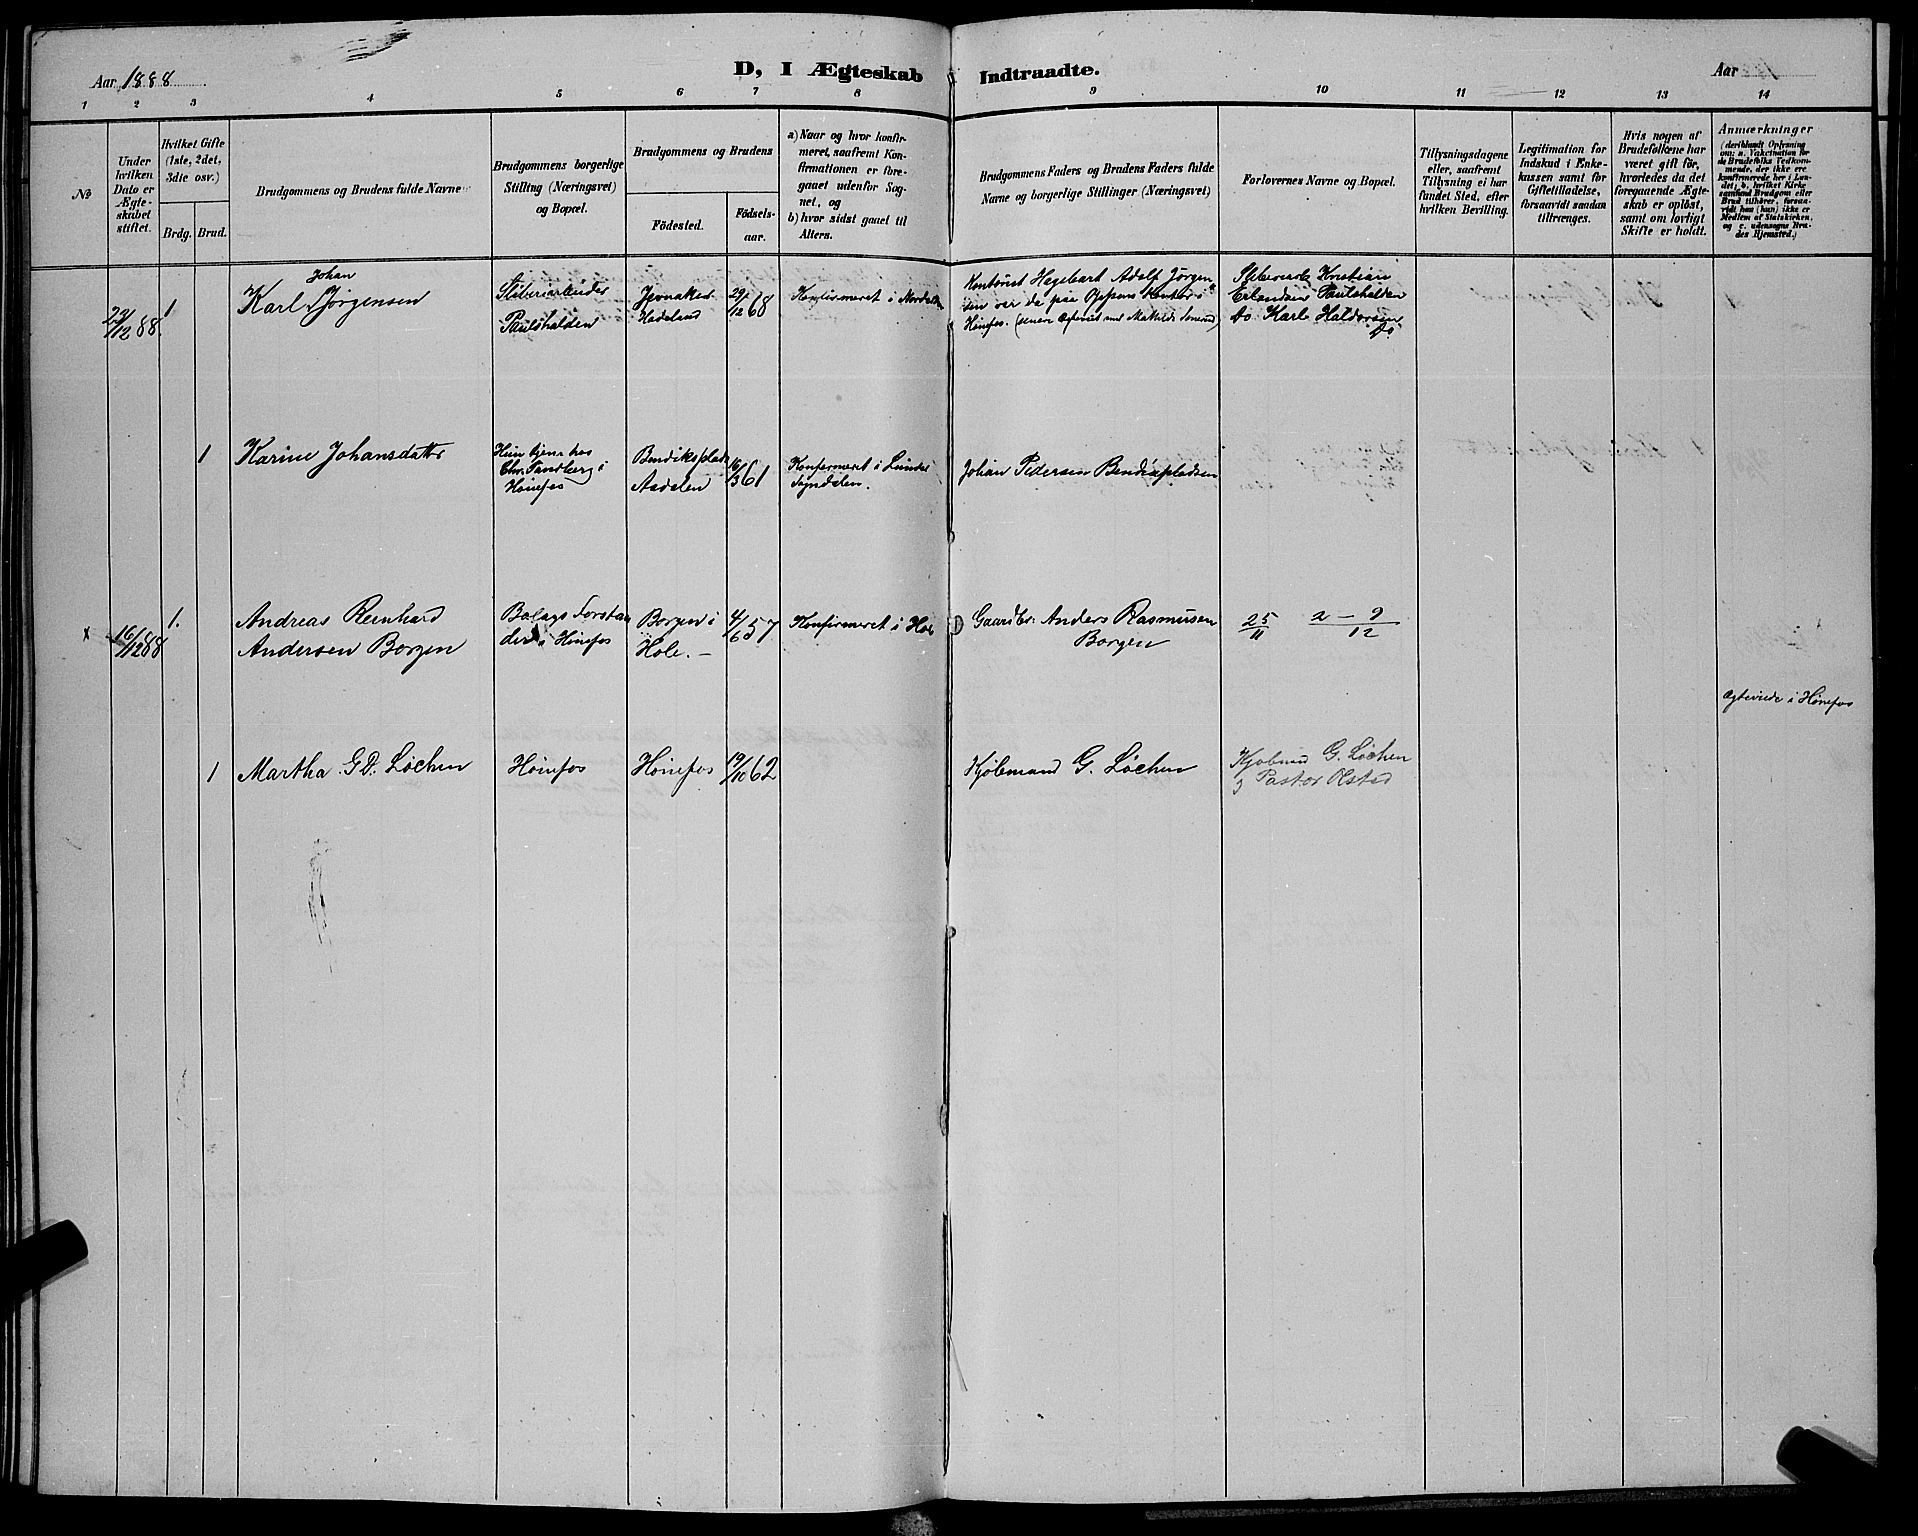 Aar 1888
D, I Ægteskab Indtraadte.
Aar
1 2 3 4 5 6 7 8 9 10 11 12 13 14
No
Under hvilken Dato er Ægteskabet stiftet.
Hvilket Gifte (1ste, 2det, 3die osv.)
Brdg. Brud.
Brudgommens og Brudens fulde Navne
Brudgommens borgerlige Stilling (Næringsvei) og Bopæl.
Brudgommens og Brudens
Fødested.
Fødselsaar.
a) Naar og hvor konfirmeret, saafremt Konfirmationen er foregaaet udenfor Sognet, og
b) hvor sidst gaaet til Alters.
Brudgommens Faders og Brudens Faders fulde Navne og borgerlige Stillinger (Næringsvei)
Forlovernes Navne og Bopæl.
Tillysningsdagene eller, saafremt Tillysning ei har fundet Sted, efter hvilken Bevilling.
Legitimation for Indskud i Enkekassen samt for Giftetilladelse, forsaavidt saadan tiltrænges.
Hvis nogen af Brudefolkene har været gift før, hvorledes da det foregaaende Ægteskab er opløst, samt om lovligt Skifte er holdt.
Anmærkninger
(deriblandt Oplysning om: a. Vakcination for de Brudefolks Vedkommende, der ikke ere konfirmerede her i Landet; b. hvilket Kirkesamfund Brudgom eller Brud tilhører, forsaavidt han (hun) ikke er Medlem af Statskirken, og c. udensogns Brudes Hjemsted.)
/12 88. 1
Johan
Karl Jørgensen
Sliberiarbeider
Paulshalden
Jevnaker
Hadeland
29/12 68
Konfirmeret i
Kontorist Hagebart Adolf Jørgen
sen var da paa Oppens Kontor i
Hønefos. (senere
Kristian
Erlandsen Paulshalden
do. Karl Haldorsen
do
1
Karine Johansdatter
Hønefos
Bendiksplads
Aadalen
16/3 61
Konfirmeret i
Sogndalen.
Johan Pedersen Bendixpladsen
x
16/12 88
1.
Andreas Reinhard
Andersen Borgen
Bolags Forstan
der i Hønefos
Borgen i
Hole. —
4/6 57
Konfirmeret i Hole
Gaardbr: Anders Rasmusen
Borgen
25/11 2 – 9/12
Ægteviede i Hønefos
1
Martha G.D. Løchen
Hønefos
Hønefos
19/10 62
Kjøbmand G. Løchen
Kjøbmd G. Løchen
Pastor Olsted